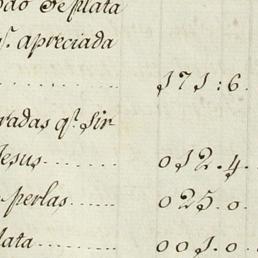 dao de plata
q.ᵉ apreciada
........ 171:6.
radas q.ᵉ sir
Jesus........ 012.4.
perlas..... 025.0.
lata......... 001.0.